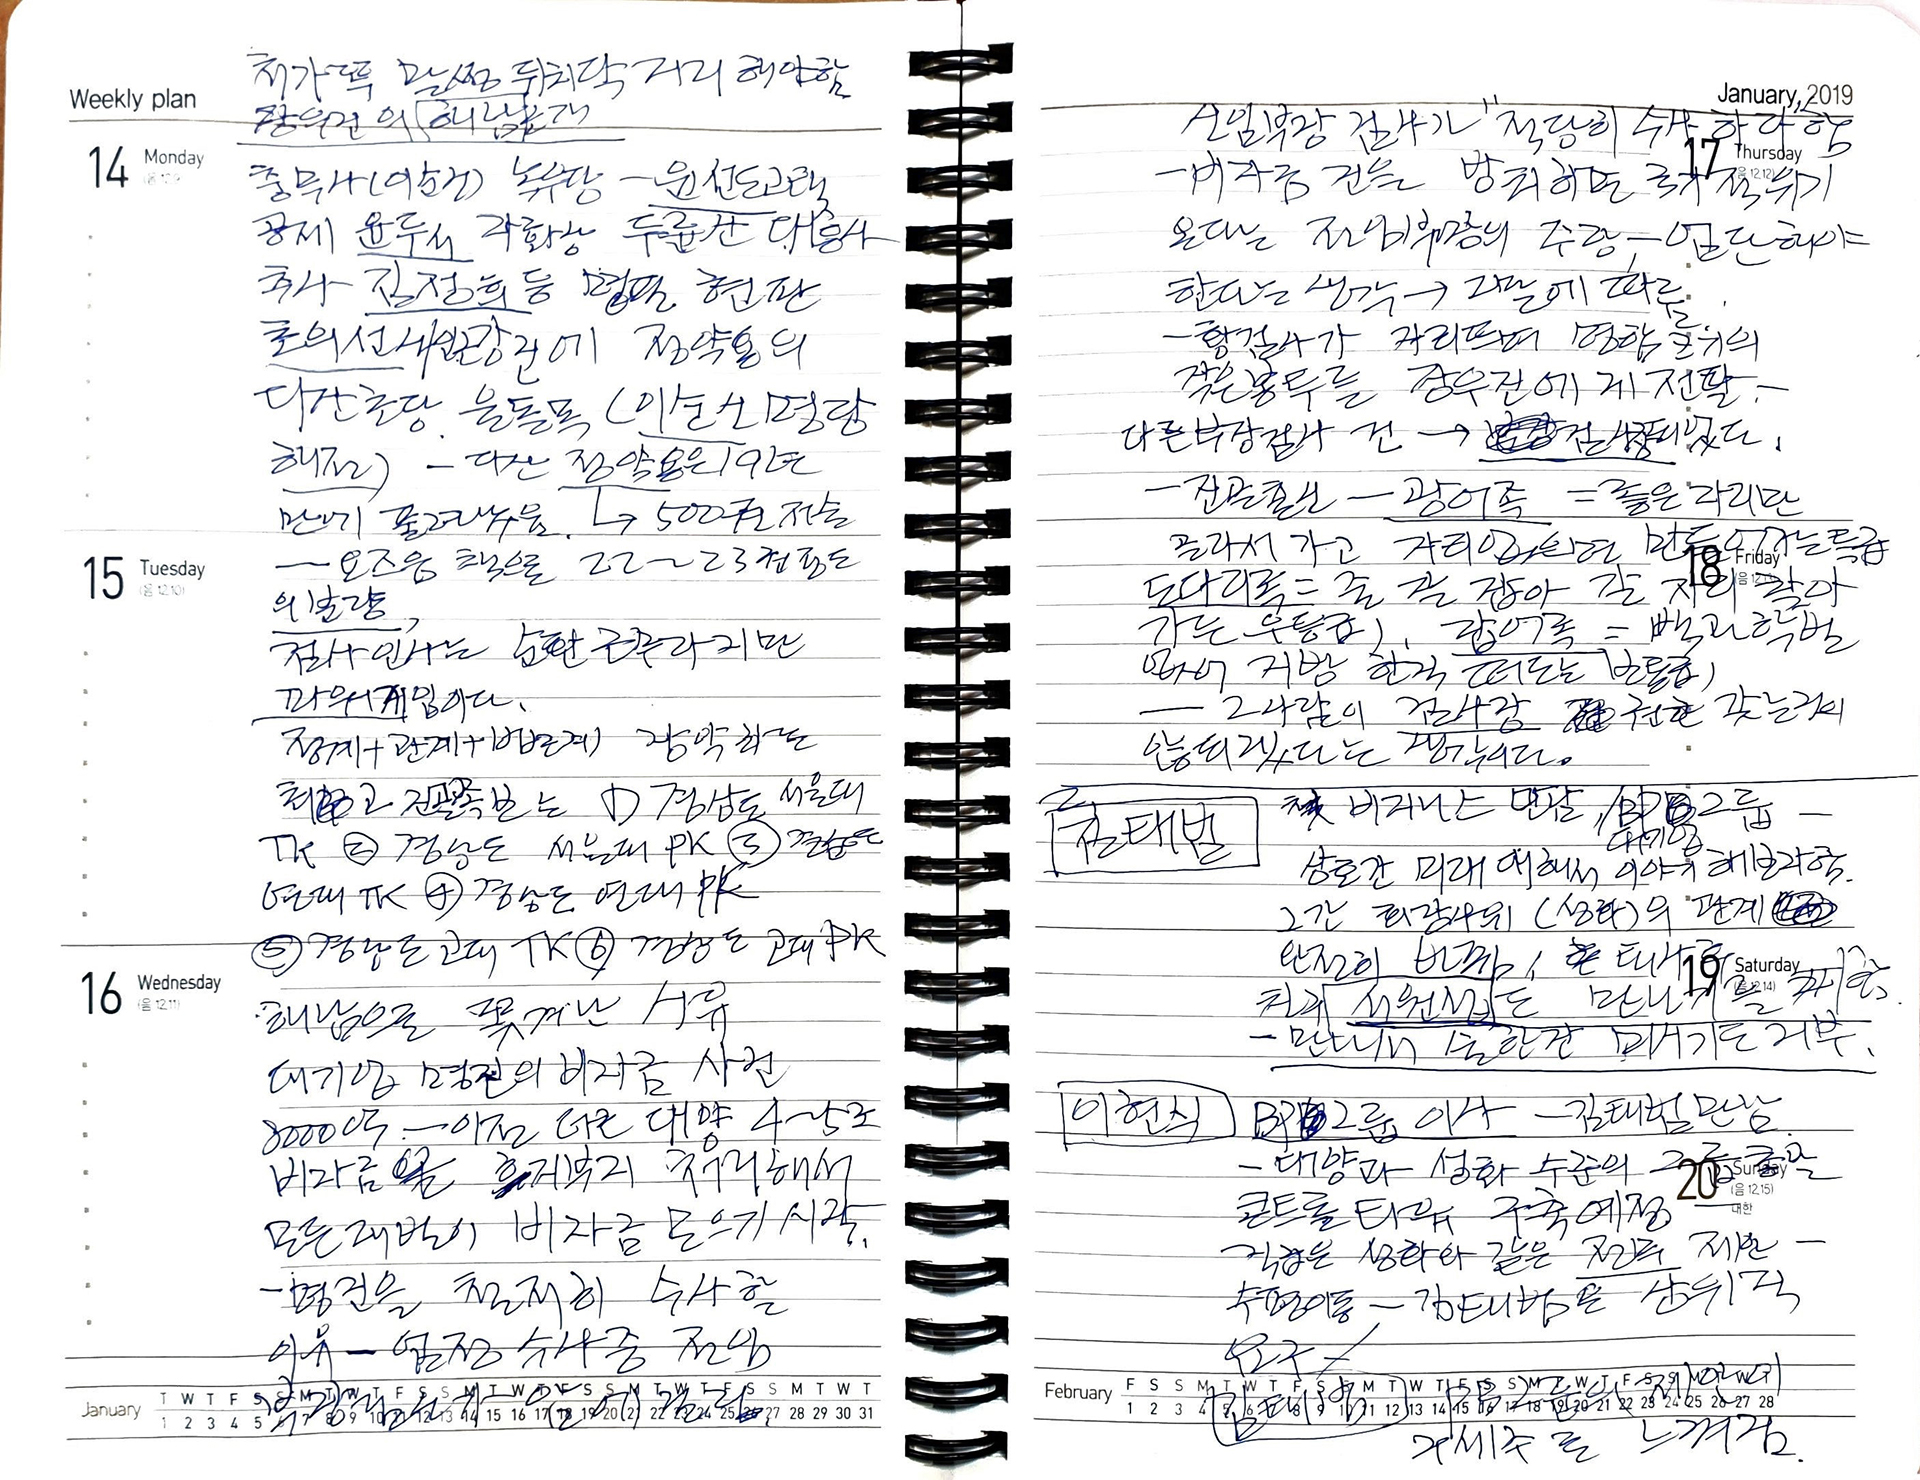 Weekly plan
처가쪽 말썽 뒤치닥거리 해야함
장우건의 해남군대
14 Monday
충무사(이순신) 녹우당 – 윤선도고택
공제 윤두서 자화상 두륜산 대흥사
추사 김정희 등 명필 현판
초의선사 일광전에 정약용의
다산초당 울돌목 (이순신 명량
해전) – 다산 정약용은 19년
만에 풀려났음. → 500권 저술
15 Tuesday
(음 12.10)
— 요즈음 책으로 22~23권 정도
의 분량,
검사인사는 순환근무라지만
파워게임이다.
정계+관계+법조계)
최고 진골 족보는 ① 경상도 서울대
TK ② 경상도 서울대 PK ③ 경상도
연대 TK ④ 경상도 연대 PK
⑤ 경상도 고대 TK ⑥ 경상도 고대 PK
16 Wednesday
(음 12.11)
해남으로 쫓겨난 이유
대기업 명진의 비자금 사건
8000억 – 이전 더큰 대양 4~5조
비자금을 흐지부지 처리해서
모든 재벌이 비자금 모으기 시작.
– 명진을 철저히 수사할
이유 – 열정 수사중 전임
January
T W T F S S M T W T F S S M T W T F S S M T W T F S S M T W T
1 2 3 4 5 6 7 8 9 10 11 12 13 14 15 16 17 18 19 20 21 22 23 24 25 26 27 28 29 30 31
January, 2019
신임부장 검사가 "적당히 수사하라 함
17 Thursday
(음 12.12)
– 비자금 건을 방치하면 국가적 위기
온다는 전임부장의 주장, – 엄단해야
한다는 생각 → 그말에 따름.
– 황검사가 자리뜨며 명함 크기의
작은봉투를 장우건에게 전달. –
다른부장검사 건 → 검사 있다.
– 진골출신 – 광어족 = 좋은자리만
골라서 가고 자리없으면 만들어가는 특급
18 Friday
도다리족 = 줄 잘 잡아 좋은 자리 찾아
가는 우등급), 잡어족 = 빽과 학벌
없어 지방 한직 떠도는 보통급)
— 그사람이 검사장 권한 갖는것이
안되겠다는 생각이다.
김태범
비키니는 면담, 그룹 –
대기업
상호간 미래 대해서 이야기 해보라함.
그간 회장사위 (성화)의 관계
완전히 바뀜,
19 Saturday
(음 12.14)
처과 서원섭도 만나기를 피함.
– 만나서 술한잔 마시기도 거부.
이현식
그룹 이사 – 김태범 만남
– 대양과 성화 수준의 그룹
20 Sunday
(음 12.15)
대한
콘트롤 타워 구축예정 –
직급은 성화와 같은 전무 제안 –
수평이동 – 김태범은 상위직
요구 –
February
F S S M T W T F S S M T W T F S S M T W T F S S M T W T
1 2 3 4 5 6 7 8 9 10 11 12 13 14 15 16 17 18 19 20 21 22 23 24 25 26 27 28
김태범
구세주를 느껴짐.